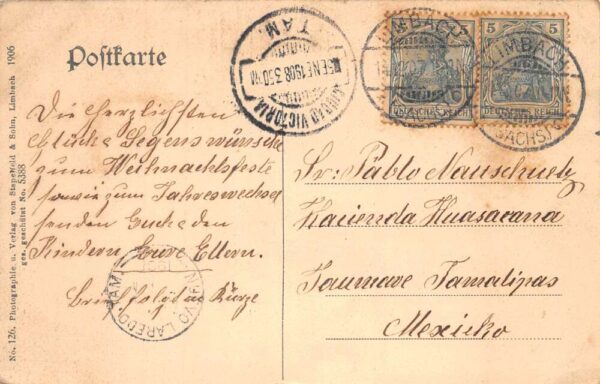 Postkarte
Die herzlichsten
Glücks Segenswünsche
zum Weihnachtsfeste
sowie zum Jahreswechsel
senden Euch den
Kindern, Eure Eltern.
Brief folgt in Kürze
Sr. Pablo Nauschuetz
Hacienda Huasacana
Jaumave Tamaulipas
Mexiko
No. 126. Photographie u. Verlag von Stapsfeld & Sohn, Limbach 1906
ges. geschützt No. 5388
CIUDAD VICTORIA
TAM.
5 ENE 1908 3.30
LIMBACH
LIMBACH
(SACHSEN)
5 5
DEUTSCHES REICH
DEUTSCHES REICH
NUEVO LAREDO TAM